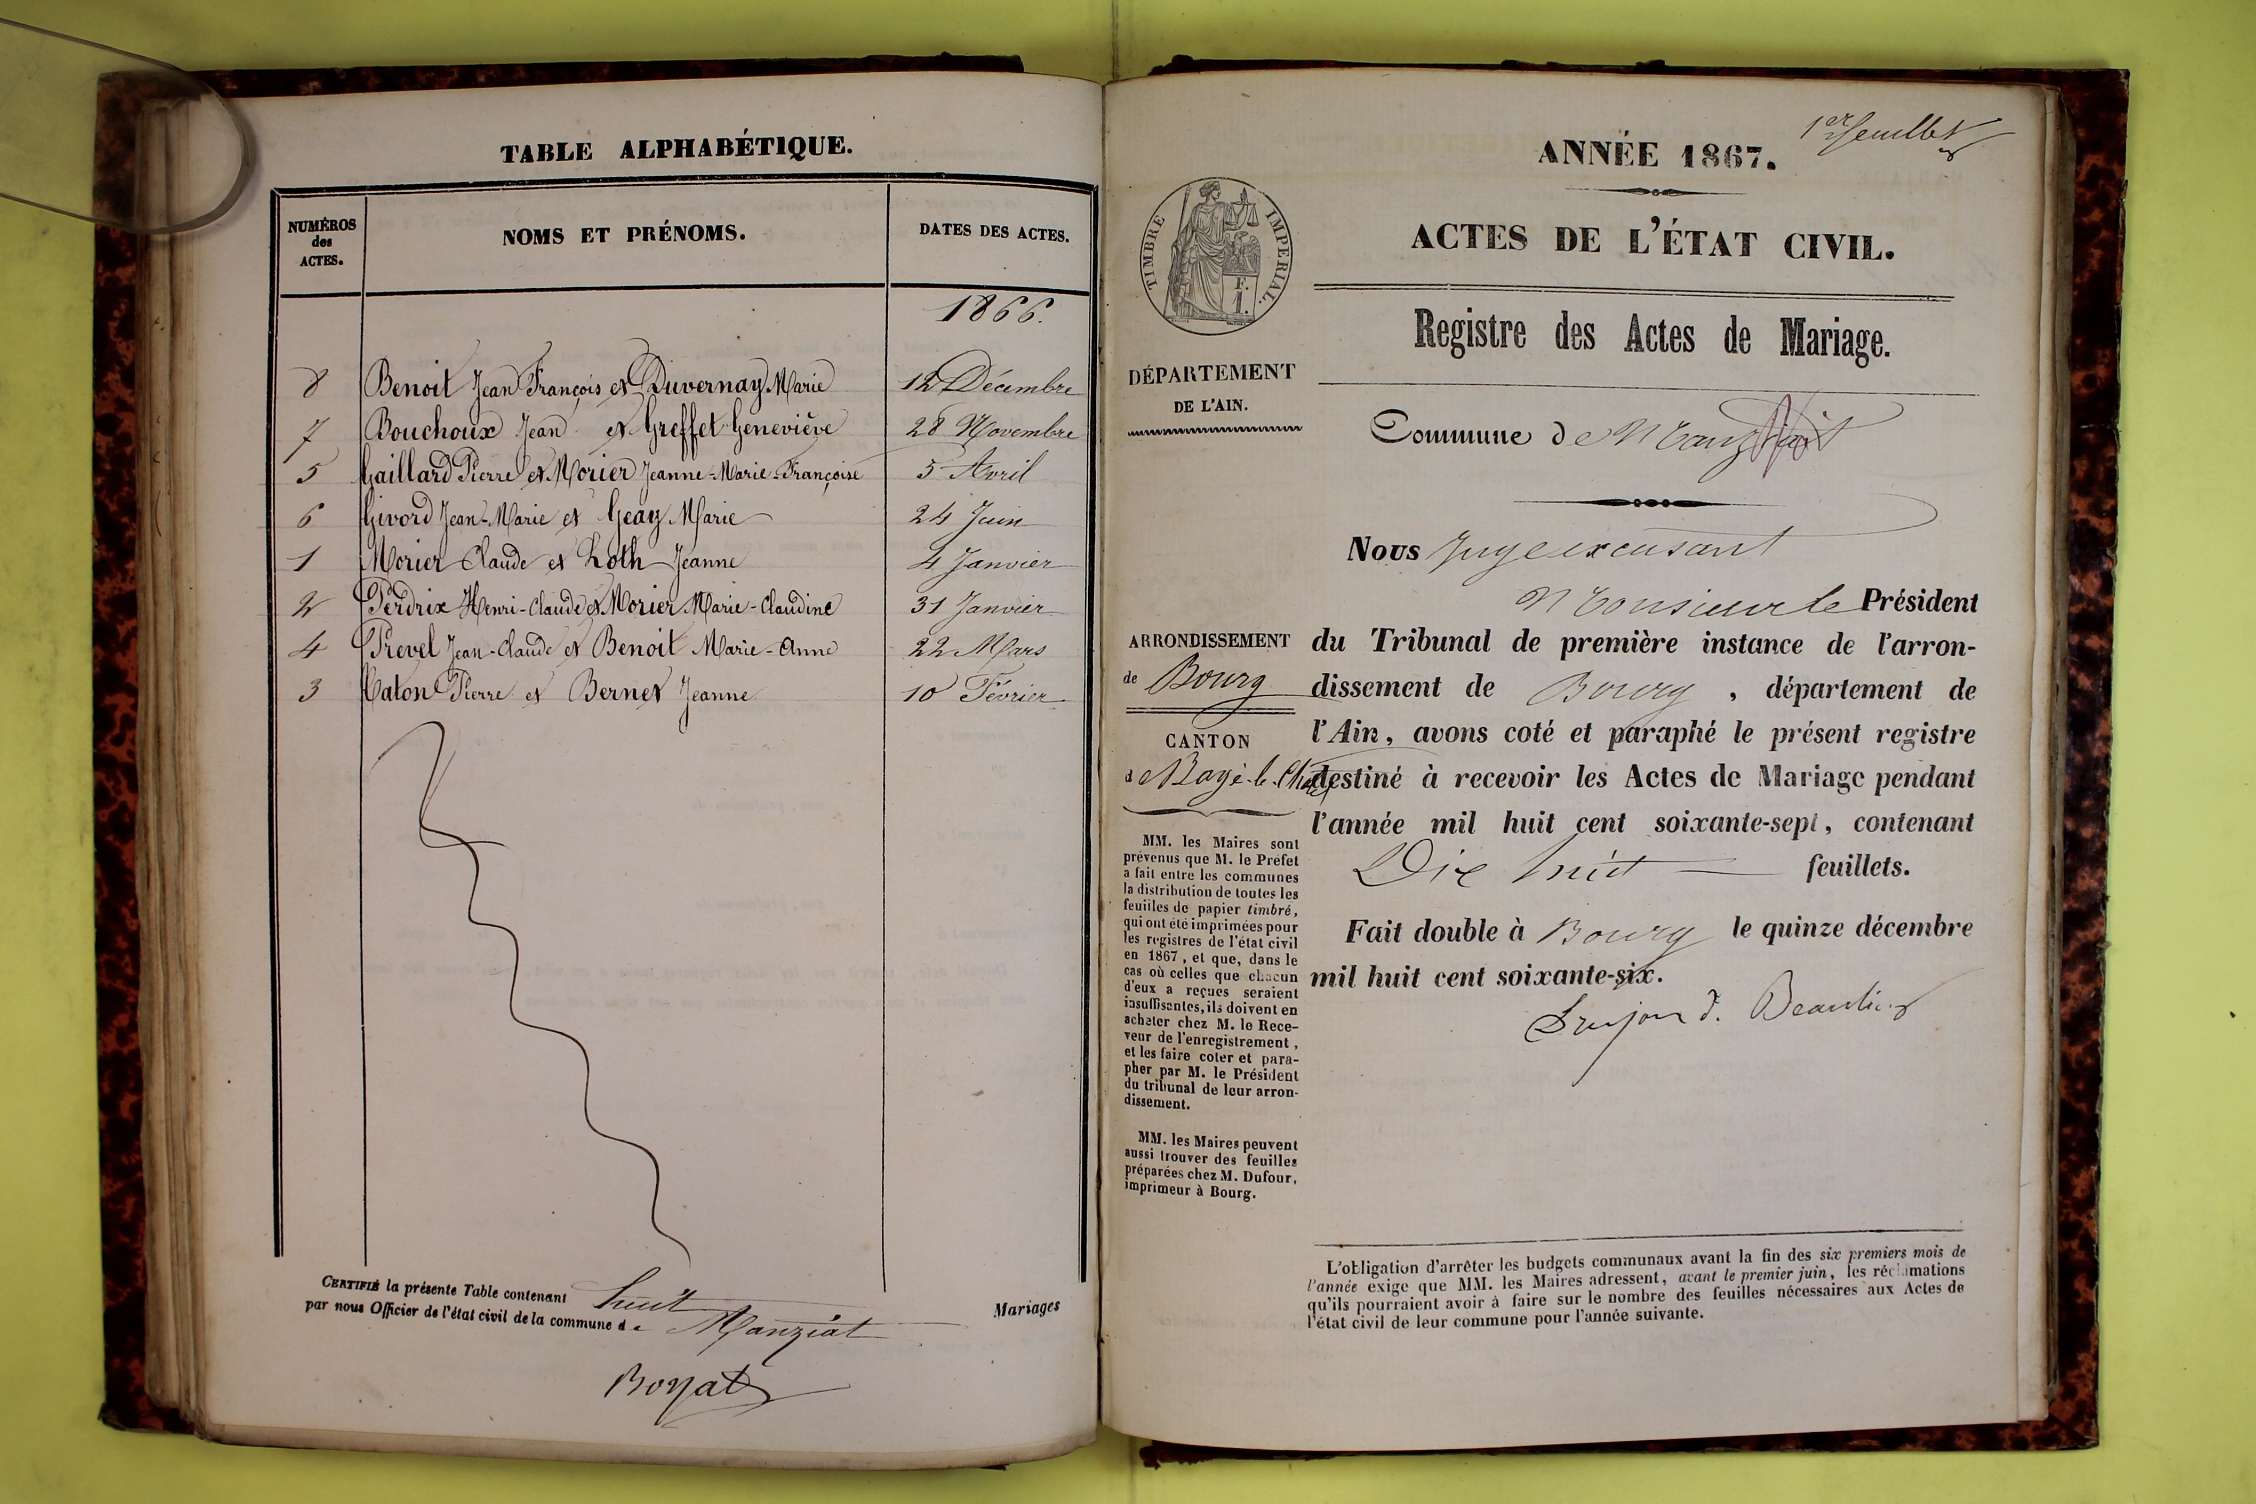 TABLE ALPHABÉTIQUE.
NUMÉROS
des
ACTES.
NOMS ET PRÉNOMS.
DATES DES ACTES.
1866.
8 Benoit Jean François et Duvernay Marie 12 Décembre
7 Bouchoux Jean et Greffet Geneviève 28 Novembre
5 Gaillard Pierre et Morier Jeanne-Marie-Françoise 5 Avril
6 Givord Jean-Marie et Geay Marie 24 Juin
1 Morier Claude et Loth Jeanne 4 Janvier
2 Perdrix Henri-Claude et Morier Marie-Claudine 31 Janvier
4 Prevel Jean-Claude et Benoit Marie-Anne 22 Mars
3 Caton Pierre et Bernet Jeanne 10 Février
CERTIFIÉ la présente Table contenant huit Mariages
par nous Officier de l'état civil de la commune de Manziat
Boyat
1er feuillet
ANNÉE 1867.
ACTES DE L'ÉTAT CIVIL.
Registre des Actes de Mariage.
TIMBRE IMPÉRIAL.
F.
1.
DÉPARTEMENT
DE L'AIN.
Commune de Manziat
Nous Juge excusant
Monsieur le Président
du Tribunal de première instance de l'arron-
dissement de Bourg, département de
l'Ain, avons coté et paraphé le présent registre
destiné à recevoir les Actes de Mariage pendant
l'année mil huit cent soixante-sept, contenant
Dix huit feuillets.
Fait double à Bourg le quinze décembre
mil huit cent soixante-six.
ARRONDISSEMENT
de Bourg
CANTON
de Bagé-le-Chatel
MM. les Maires sont
prévenus que M. le Préfet
a fait entre les communes
la distribution de toutes les
feuilles de papier timbré,
qui ont été imprimées pour
les registres de l'état civil
en 1867, et que, dans le
cas où celles que chacun
d'eux a reçues seraient
insuffisantes, ils doivent en
acheter chez M. le Rece-
veur de l'enregistrement,
et les faire coter et para-
pher par M. le Président
du tribunal de leur arron-
dissement.
MM. les Maires peuvent
aussi trouver des feuilles
préparées chez M. Dufour,
imprimeur à Bourg.
L'obligation d'arrêter les budgets communaux avant la fin des six premiers mois de
l'année exige que MM. les Maires adressent, avant le premier juin, les réclamations
qu'ils pourraient avoir à faire sur le nombre des feuilles nécessaires aux Actes de
l'état civil de leur commune pour l'année suivante.